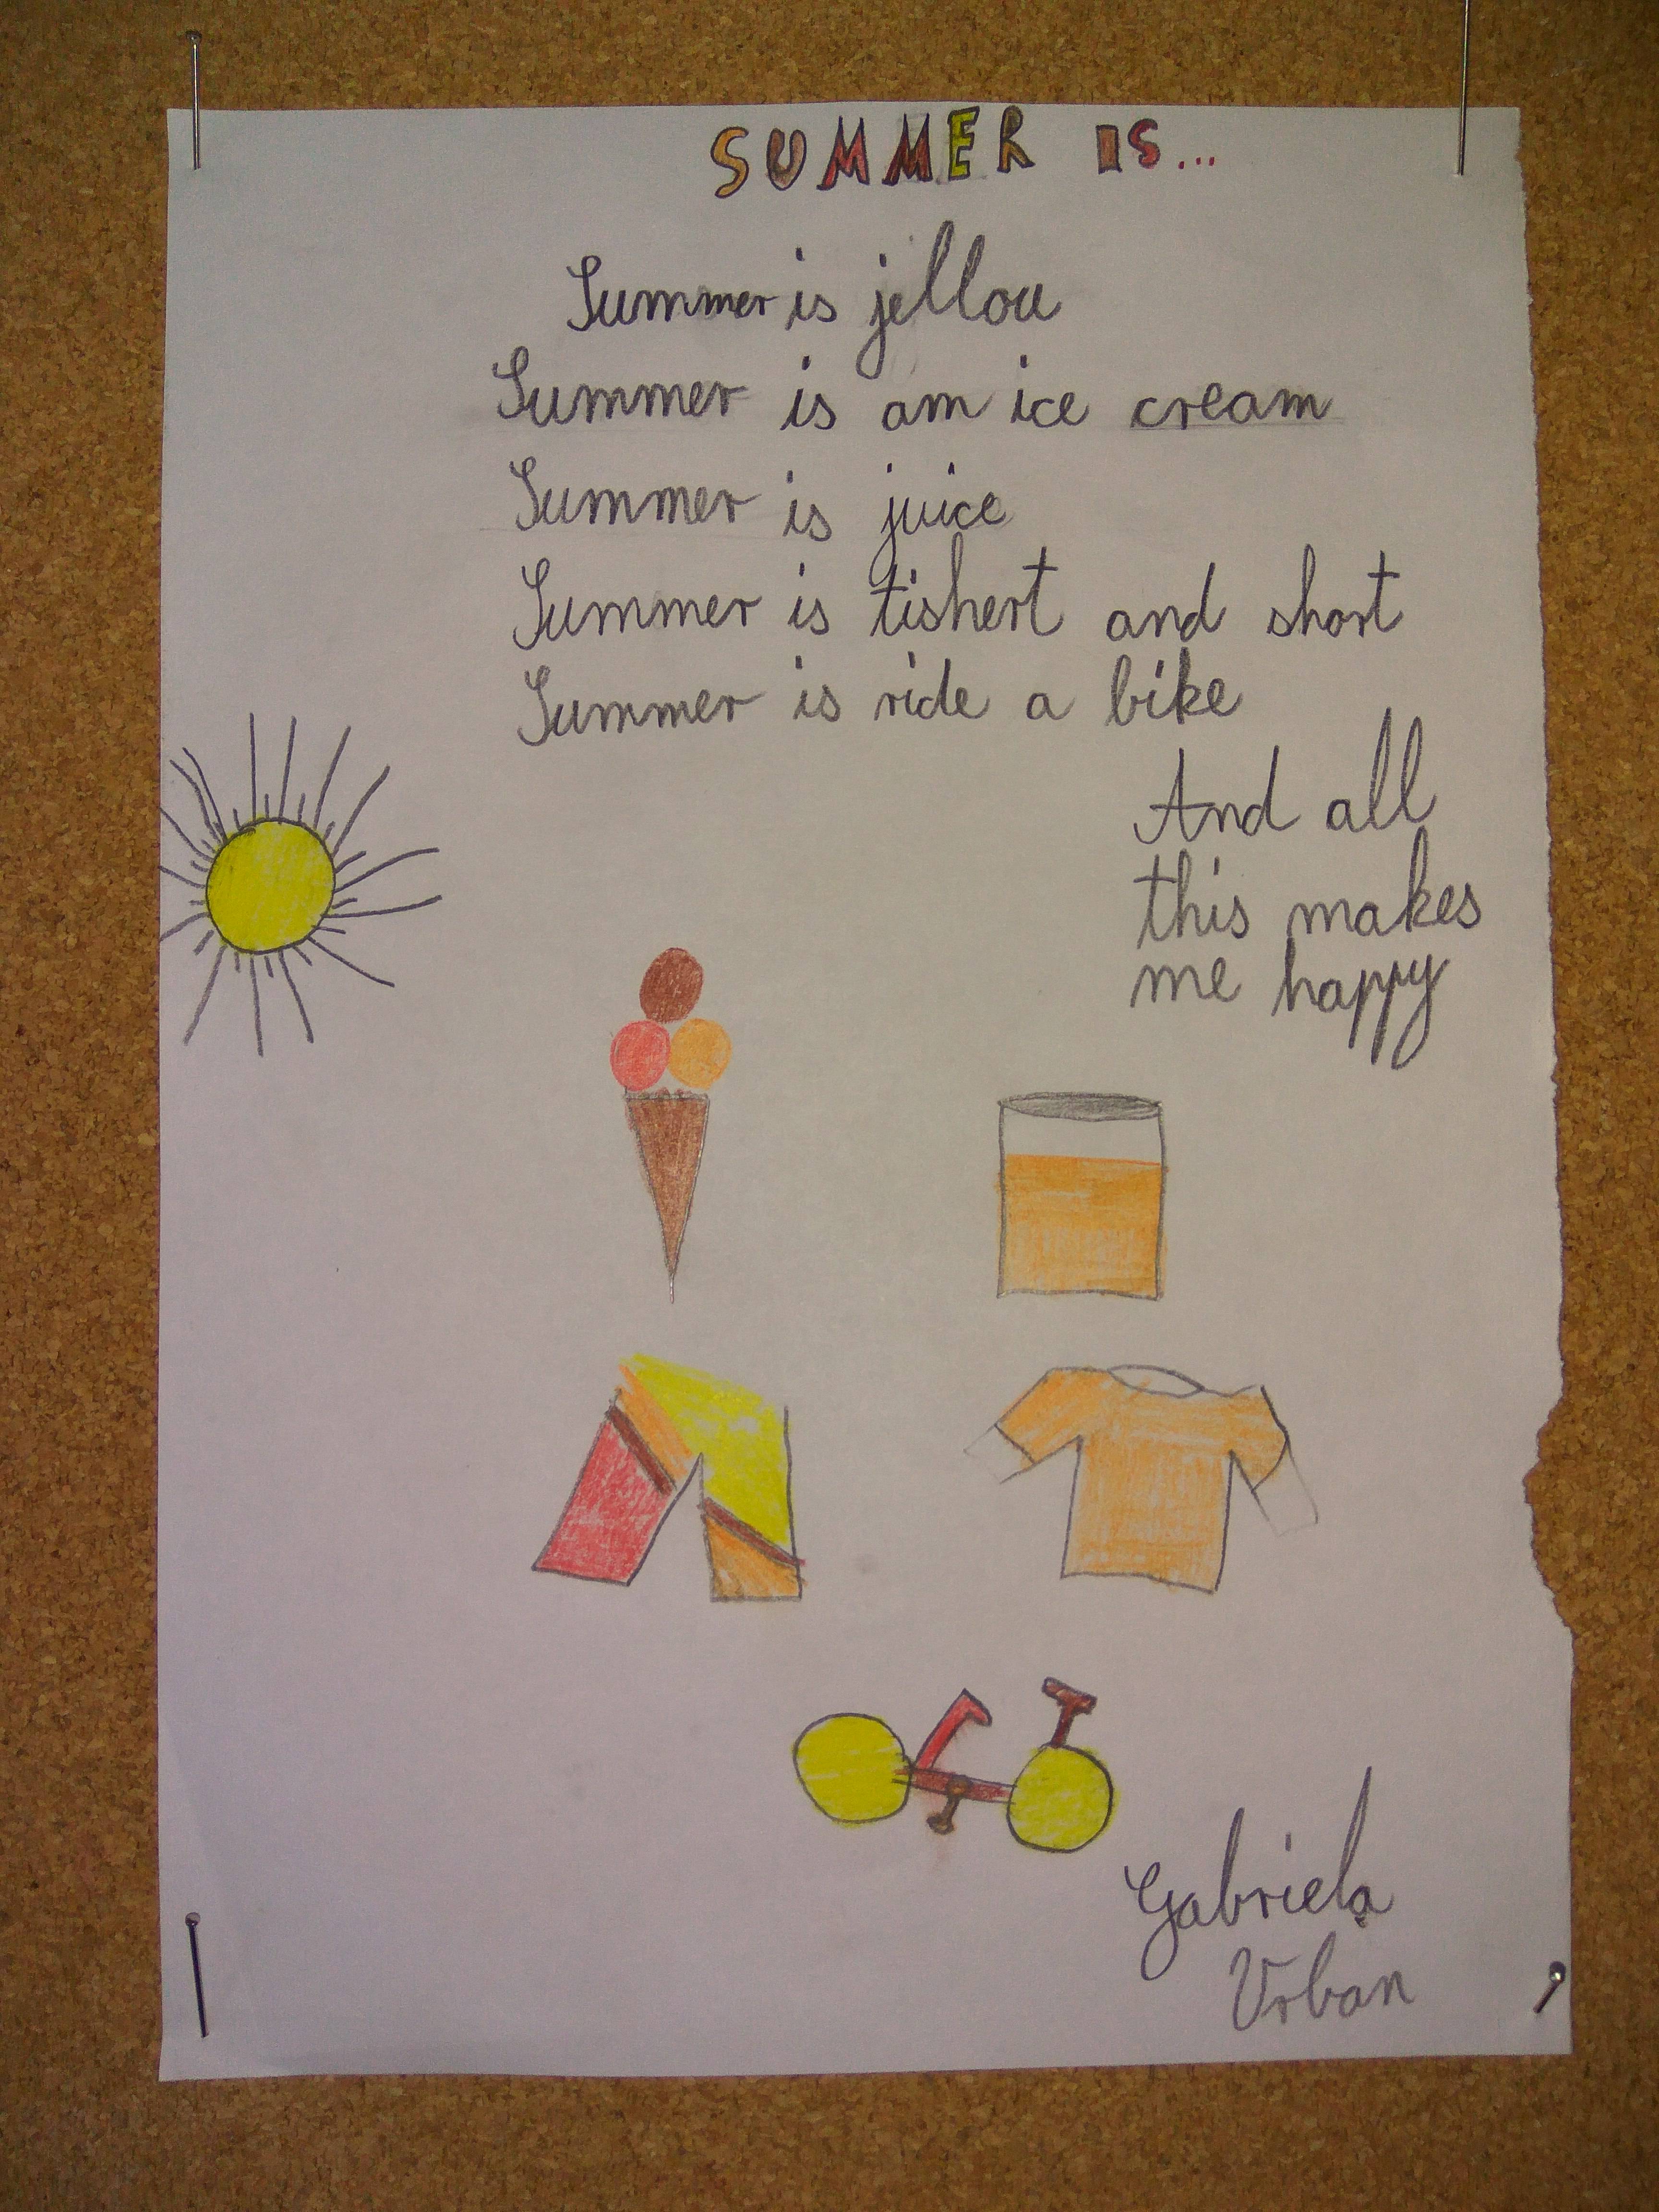 SUMMER IS...
Summer is jellou
Summer is am ice cream
Summer is juice
Summer is tishert and short
Summer is ride a bike
And all
this makes
me happy
Gabriela
Urban